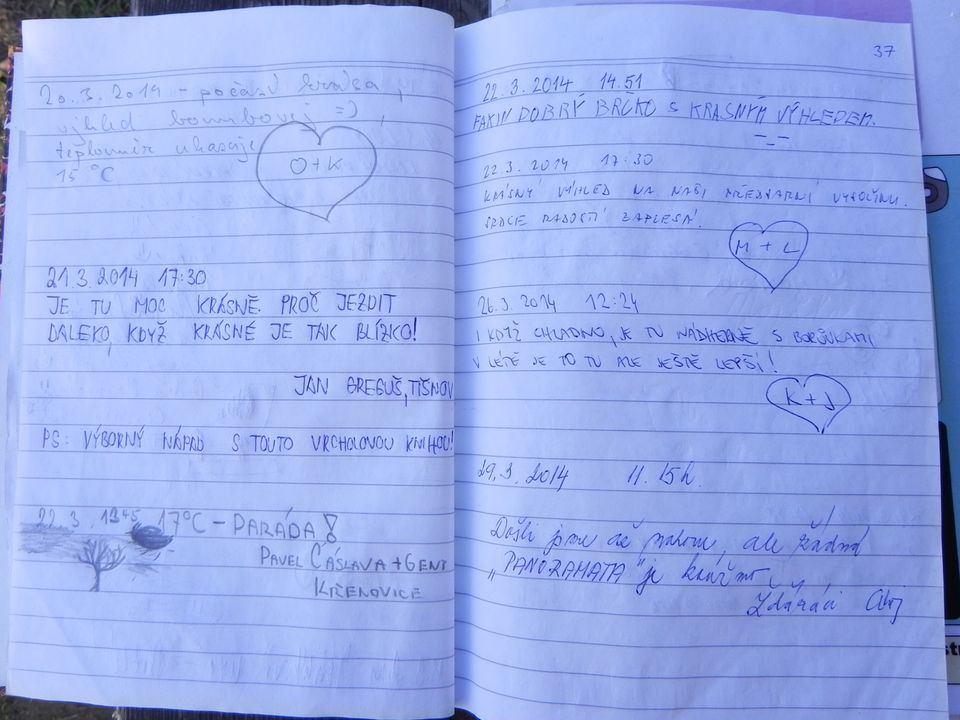 20.3.2014 - počasí krása,
výhled bombovej =),
teploměr ukazuje
15 °C
O + K
21.3.2014 17:30
JE TU MOC KRÁSNĚ. PROČ JEZDIT
DALEKO, KDYŽ KRÁSNĚ JE TAK BLÍZKO!
JAN GREGUŠ, TIŠNOV
PS: VÝBORNÝ NÁPAD S TOUTO VRCHOLOVOU KNIHOU!
22.3. 1345 17°C - PARÁDA!
PAVEL ČÁSLAVA + GENT
KŘENOVICE
37
22.3.2014 14.51
FAKIN DOBRÝ BRČKO S KRASNÝM VÝHLEDEM.
22.3.2014 17:30
KRÁSNÝ VÝHLED NA NAŠI VYSOČINU.
SRDCE RADOSTÍ ZAPLESÁ!
M + L
26.3.2014 12:24
I KDYŽ CHLADNO, JE TU NÁDHERNĚ S BORŮVKAMI
V LÉTĚ JE TO TU ALE JEŠTĚ LEPŠÍ!
K + J
29.3.2014 11.15h.
Došli jsme až nahoru, ale žádná
„PANORAMATA" je
Žďáráci